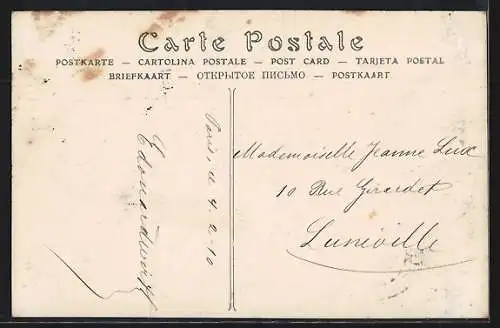 Carte Postale
POSTKARTE — CARTOLINA POSTALE — POST CARD — TARJETA POSTAL
BRIEFKAART — ОТКРЫТОЕ ПИСЬМО — POSTKAART
Paris, le 4-2-10
Mademoiselle Jeanne Lux
10 Rue Girardet
Lunéville